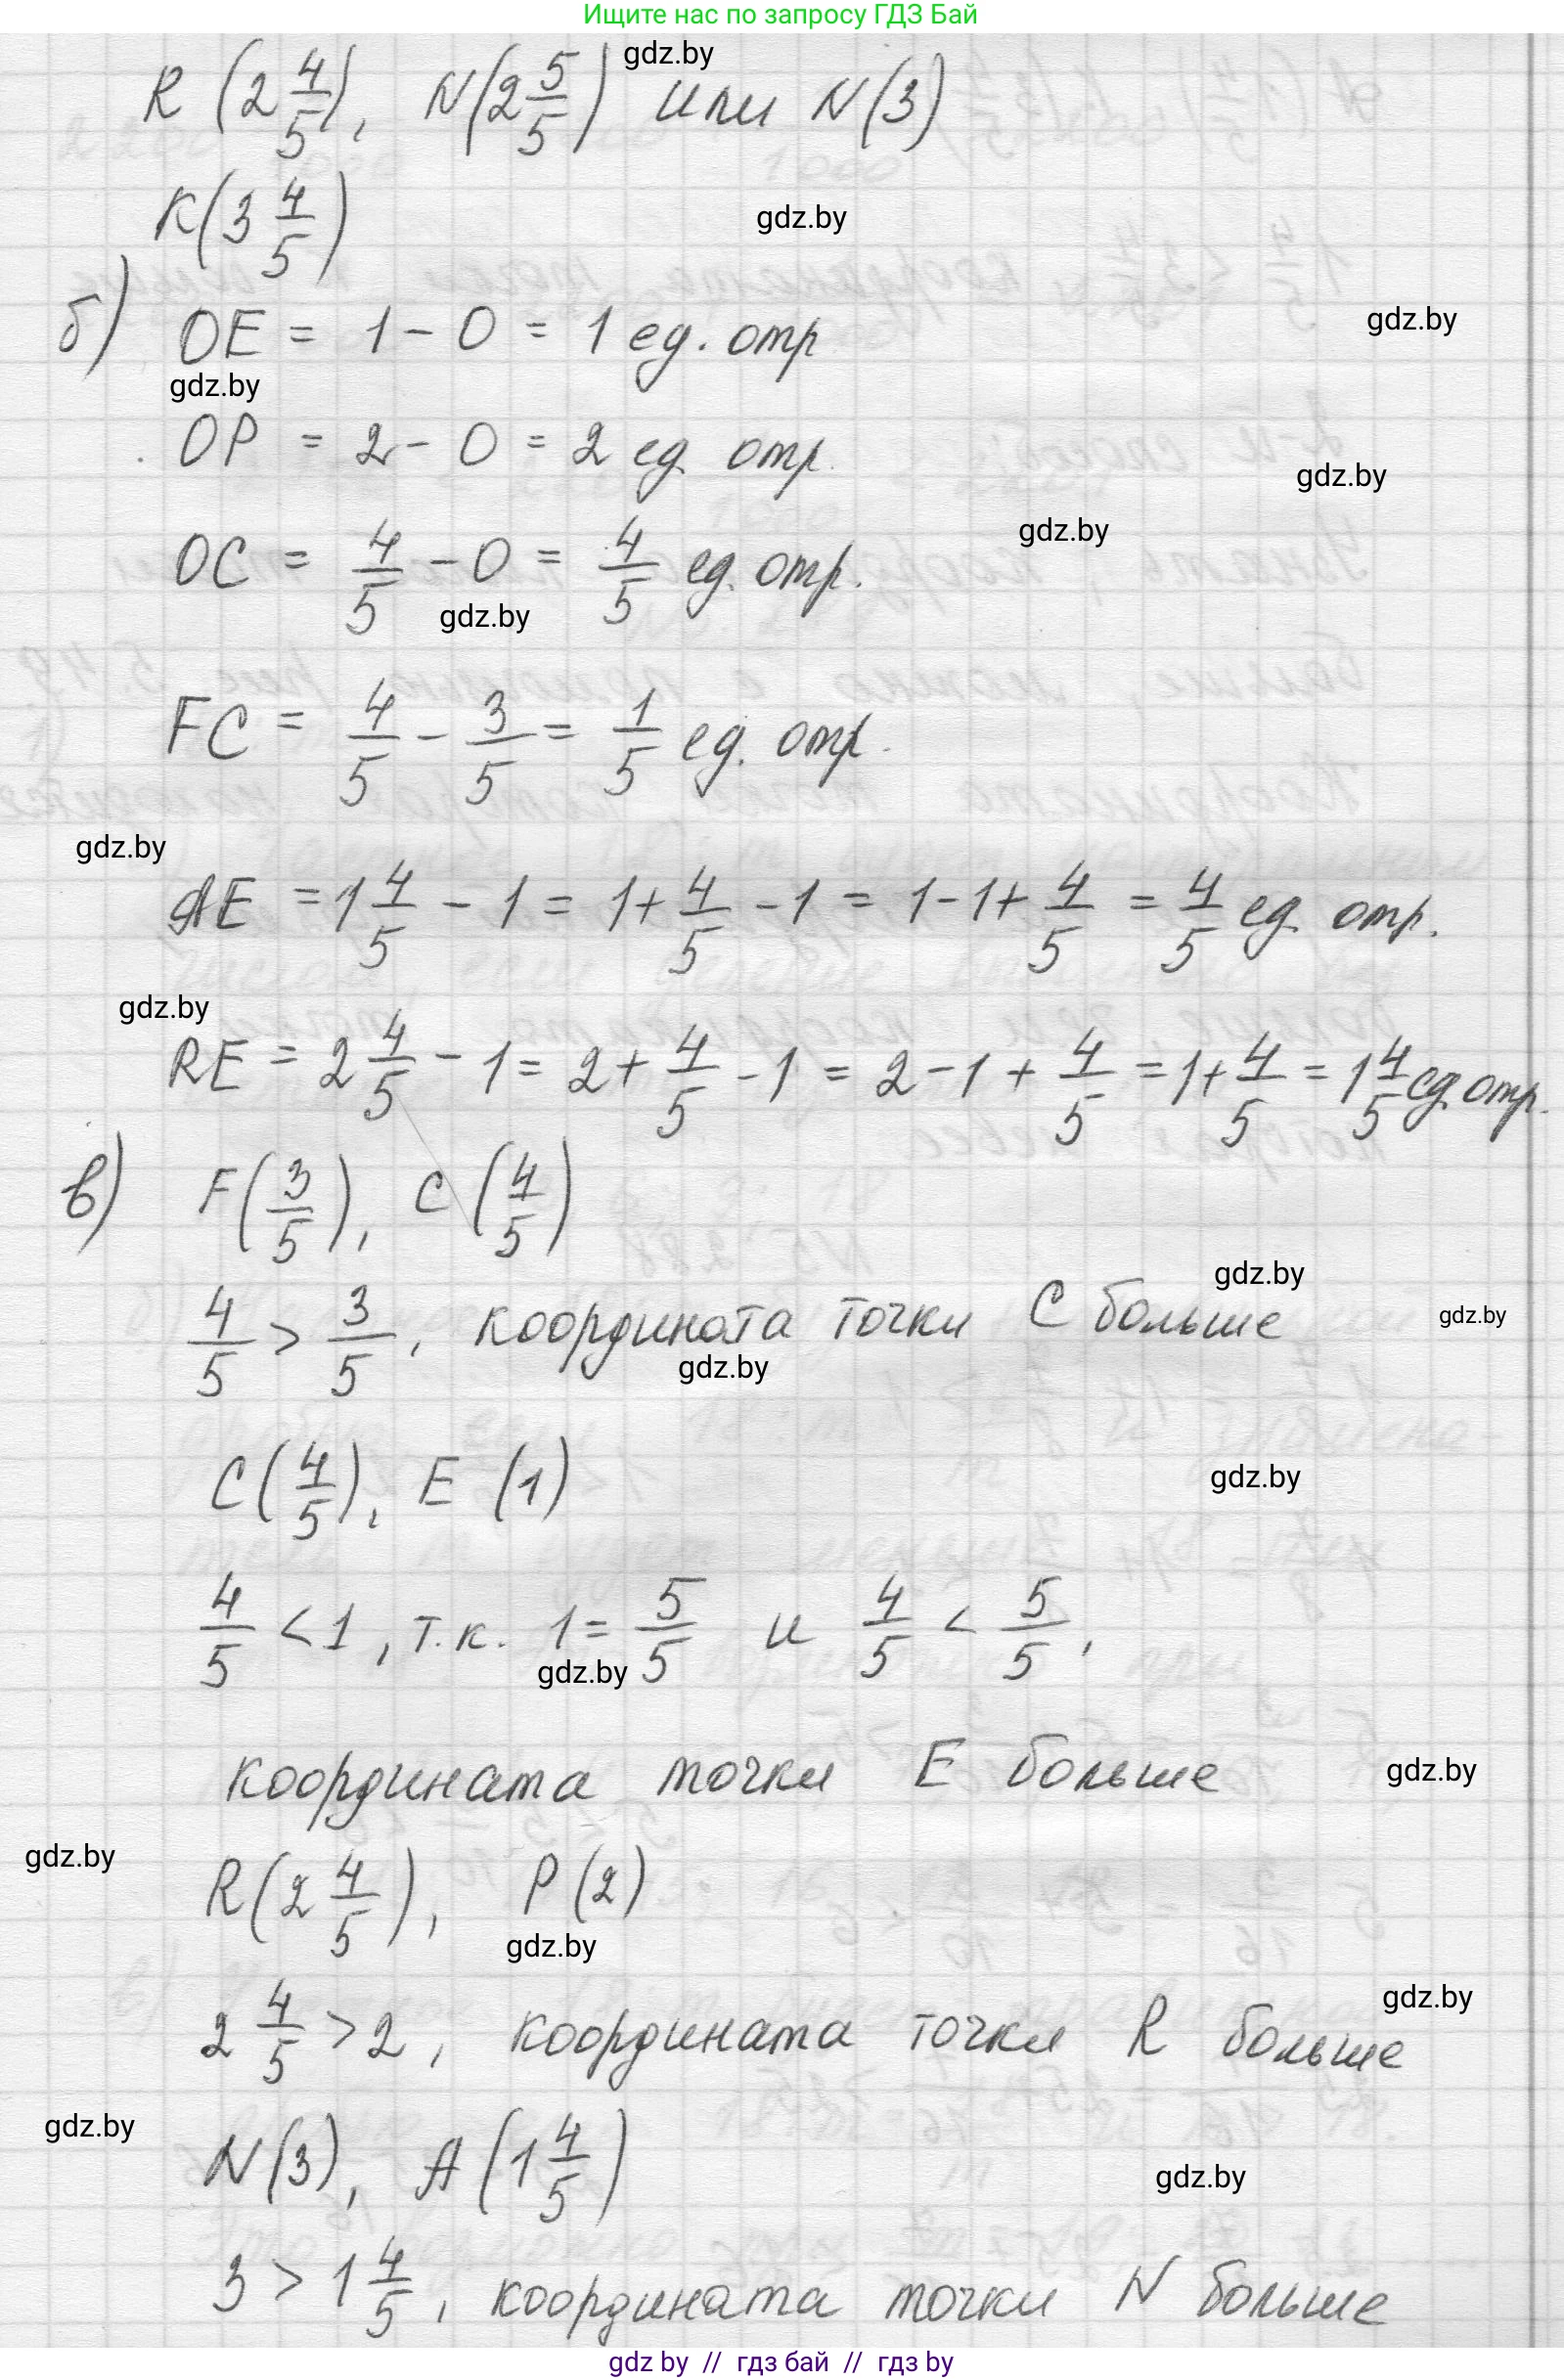 Ищите нас по запросу ГДЗ Бай
gdz.by
R (2 4/5), N(2 5/5) или N(3)
K(3 4/5)
gdz.by
б) OE = 1 - 0 = 1 ед. отр
gdz.by
gdz.by
OP = 2 - 0 = 2 ед. отр.
gdz.by
gdz.by
OC = 4/5 - 0 = 4/5 ед. отр.
gdz.by
FC = 4/5 - 3/5 = 1/5 ед. отр.
gdz.by
AE = 1 4/5 - 1 = 1 + 4/5 - 1 = 1 - 1 + 4/5 = 4/5 ед. отр.
gdz.by
RE = 2 4/5 - 1 = 2 + 4/5 - 1 = 2 - 1 + 4/5 = 1 + 4/5 = 1 4/5 ед. отр.
в) F(3/5), C(4/5)
gdz.by
4/5 > 3/5, координата точки C больше
gdz.by
gdz.by
C(4/5), E (1)
gdz.by
4/5 < 1, т.к. 1 = 5/5 и 4/5 < 5/5,
gdz.by
координата точки E больше
gdz.by
gdz.by
R(2 4/5), P(2)
gdz.by
gdz.by
2 4/5 > 2, координата точки R больше
gdz.by
N(3), A(1 4/5)
gdz.by
3 > 1 4/5, координата точки N больше
gdz by // гдз бай // гдз by